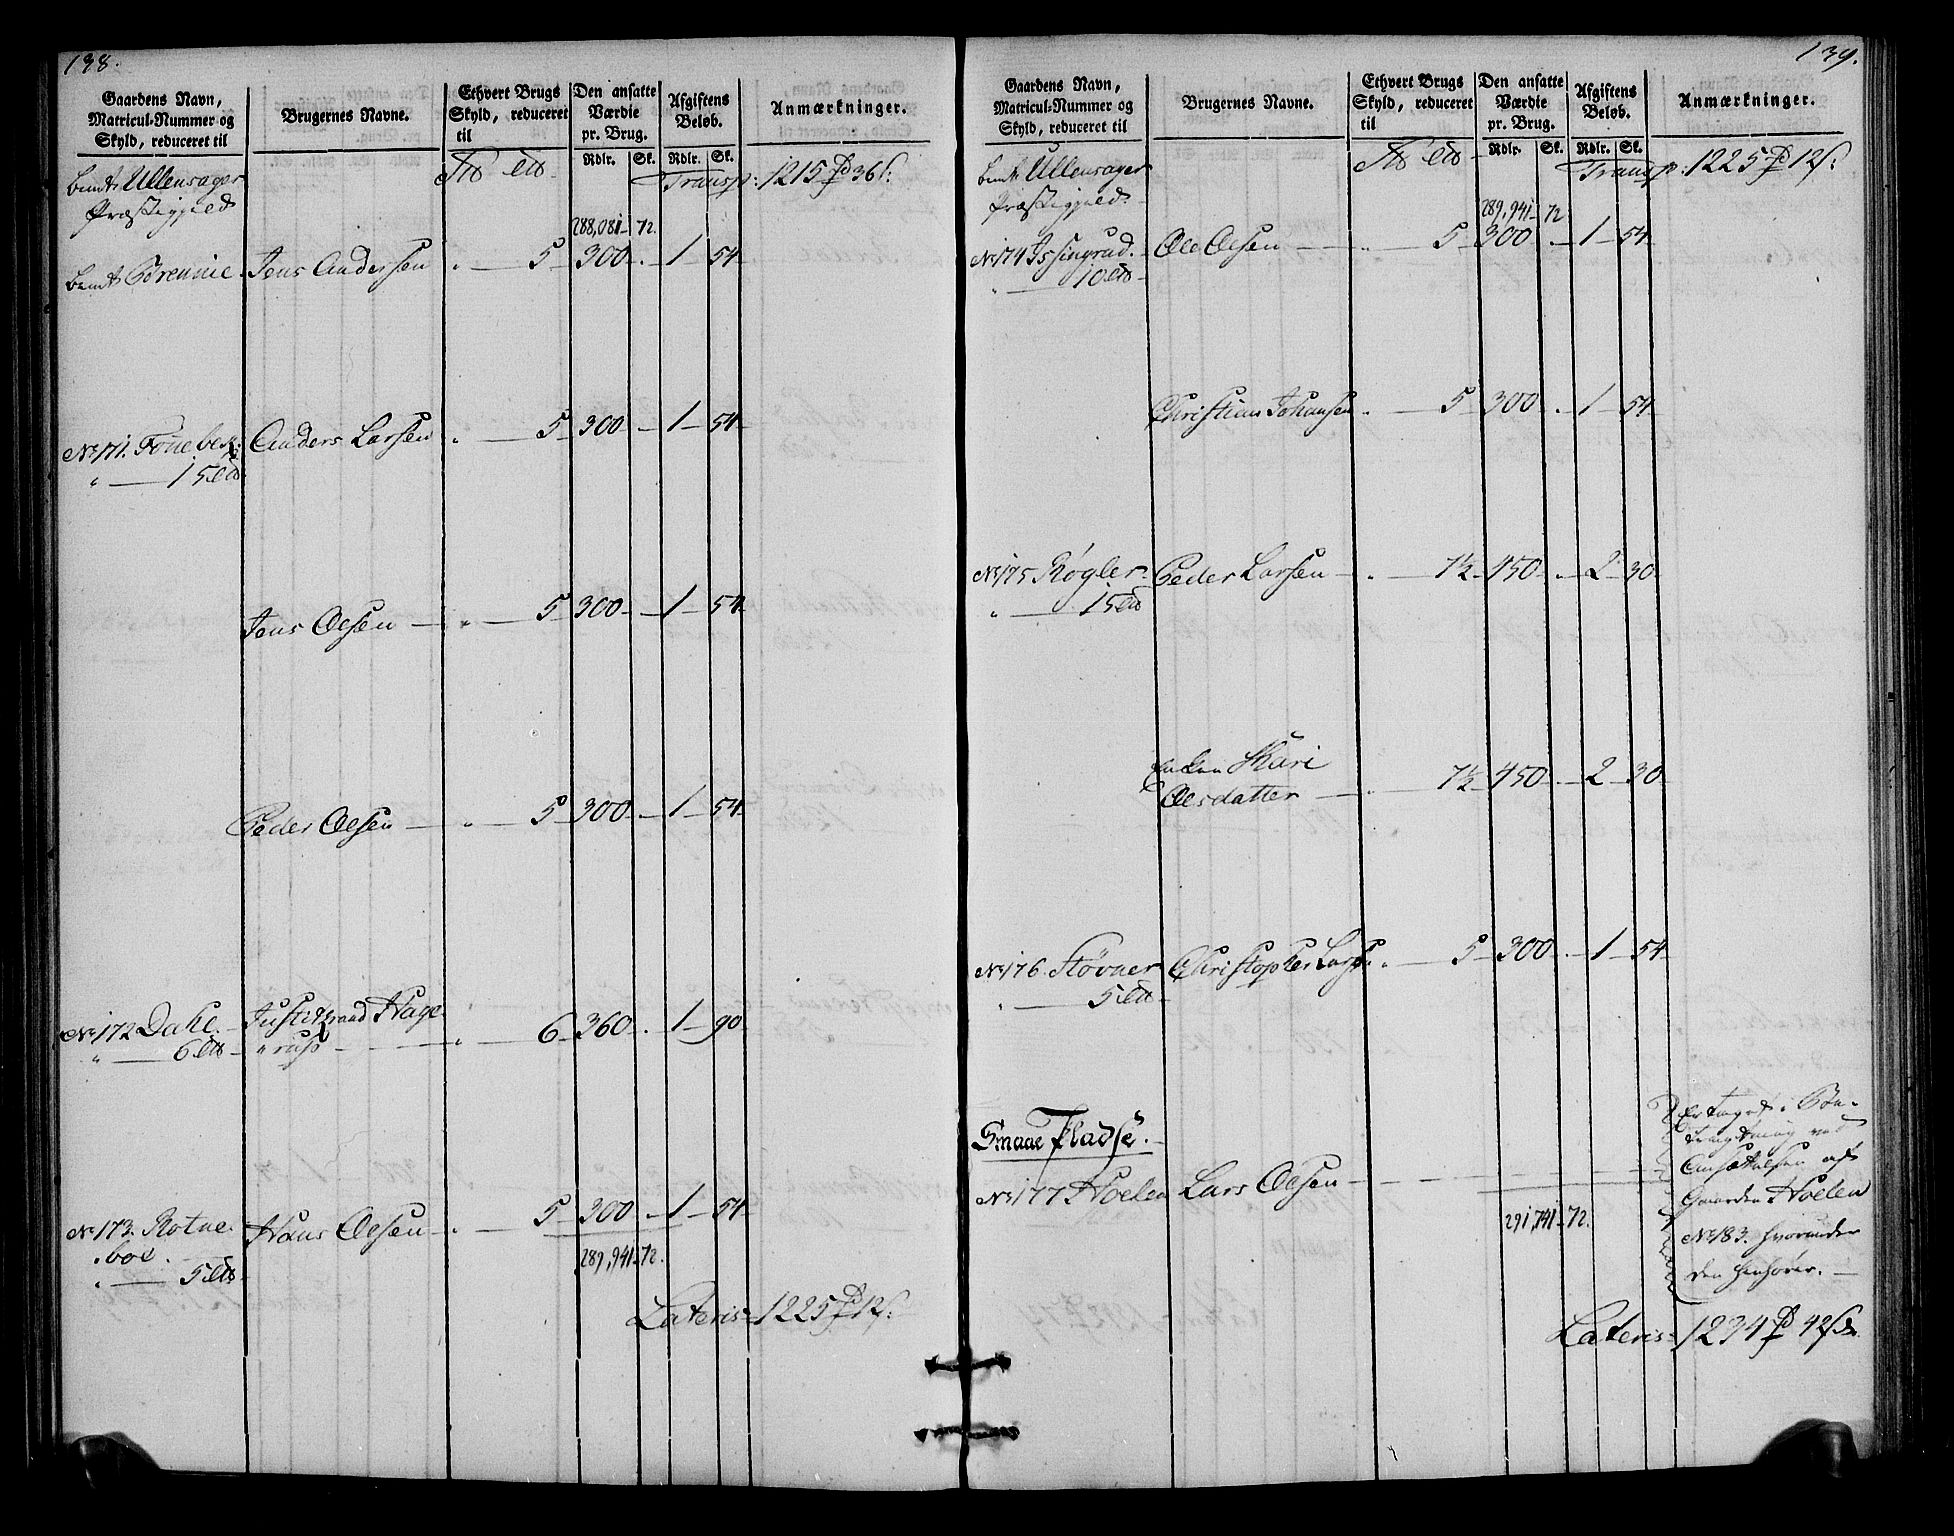 138.
Gaardens Navn, Matricul-Nummer og Skyld, reduceret til
Brugernes Navne.
Ethvert Brugs Skyld, reduceret til
Den ansatte Værdie pr. Brug.
Afgiftens Beløb.
Anmærkninger.
Rdlr. Sk. Rdlr. Sk.
Transp: 1215 36
bemte Ullensager
Præstegjeld
288,081 - 72.
bemte Jens Andersen " 5 - 300 - 1 - 54
No 171. Anders Larsen " 5 - 300 - 1 - 54
" 15
Jens Oelsen " 5 - 300 - 1 - 54
Peder Oelsen " 5 - 300 - 1 - 54
No 172 Dahl. Justitzraad Hage
" 6 " rup " 6 - 360 - 1 - 90
No 173. Rotne. Hans Oelsen " 5 - 300 - 1 - 54
boe.
" 5
289,941 - 72.
Lateris 1225 12
139.
Gaardens Navn, Matricul-Nummer og Skyld, reduceret til
Brugernes Navne.
Ethvert Brugs Skyld, reduceret til
Den ansatte Værdie pr. Brug.
Afgiftens Beløb.
Anmærkninger.
Rdlr. Sk. Rdlr. Sk.
Transp. 1225 12
bemte Ullensager
Præstegjeld.
289,941 - 72
No 174 Issingrud. Ole Oelsen " 5 - 300 - 1 - 54
" 10
Christian Johansen " 5 - 300 - 1 - 54
No 175 Røgler. Peder Larsen " 7½ - 450 - 2 - 30
" 15
Enken Kari
Oelsdatter " 7½ - 450 - 2 - 30
No 176. Støvner Christopher Larsen " 5 - 300 - 1 - 54
" 5
Smaae Pladse.
No 177 Hoelen Lars Oelsen
291,741 - 72.
Er taget i Be-
tragtning ved
Ansættelsen af
Gaarden Hoelen
No 183. hvorunder
den henhører.
Lateris 1234 42